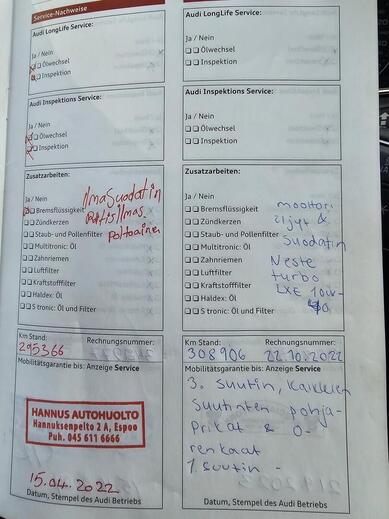 Service-Nachweise
Audi LongLife Service:
Ja / Nein
Ölwechsel
Inspektion
Audi Inspektions Service:
Ja / Nein
Ölwechsel
Inspektion
Zusatzarbeiten:
Ja / Nein
Bremsflüssigkeit
Zündkerzen
Staub- und Pollenfilter
Multitronic: Öl
Zahnriemen
Luftfilter
Kraftstofffilter
Haldex: Öl
S tronic: Öl und Filter
IlmaSuodatin
Raitisilmas
Polttoaine
Km Stand: Rechnungsnummer:
295366
Mobilitätsgarantie bis: Anzeige Service
HANNUS AUTOHUOLTO
Hannuksenpelto 2 A, Espoo
Puh. 045 611 6666
15.04.2022
Datum, Stempel des Audi Betriebs
Audi LongLife Service:
Ja / Nein
Ölwechsel
Inspektion
Audi Inspektions Service:
Ja / Nein
Ölwechsel
Inspektion
Zusatzarbeiten:
Ja / Nein
Bremsflüssigkeit
Zündkerzen
Staub- und Pollenfilter
Multitronic: Öl
Zahnriemen
Luftfilter
Kraftstofffilter
Haldex: Öl
S tronic: Öl und Filter
moottori
öljyt &
Suodatin
Neste
turbo
LXE 10W-
40
Km Stand: Rechnungsnummer:
308906 22.10.2022
Mobilitätsgarantie bis: Anzeige Service
3. suutin, kaikkien
Suutinten pohja-
Prikat & O-
renkaat
1. suutin -
Datum, Stempel des Audi Betriebs